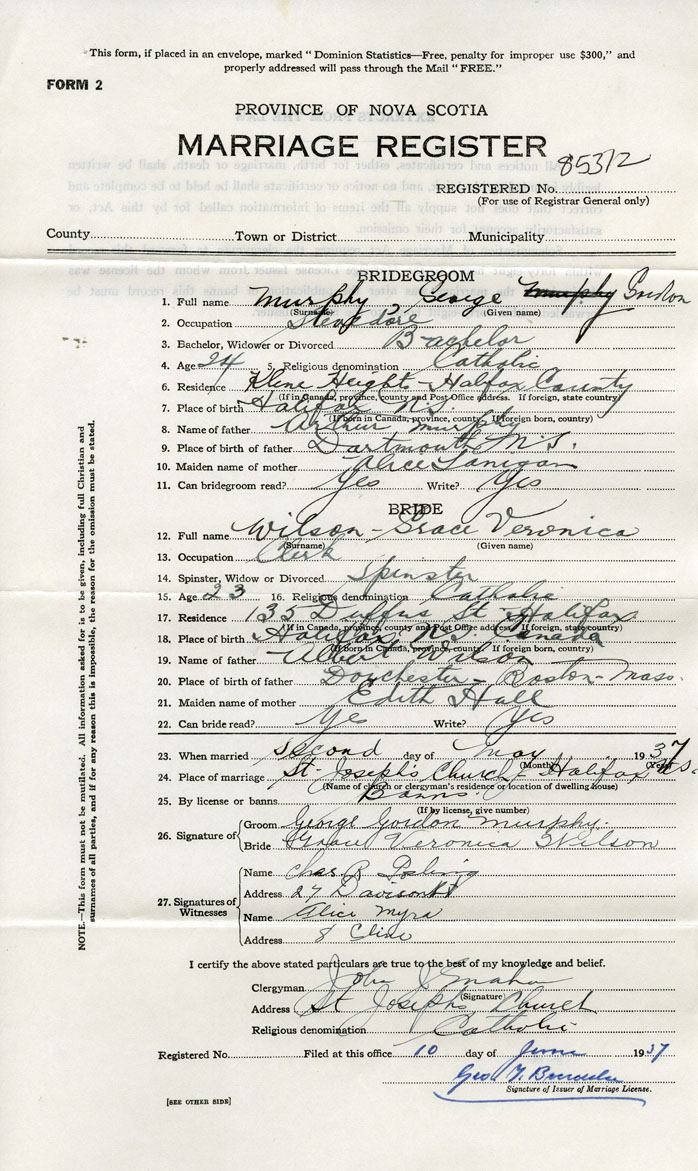 "This form, if placed in an envelope, marked "Dominion Statistics—Free, penalty for improper use $300," and
properly addressed will pass through the Mail "FREE."
FORM 2
PROVINCE OF NOVA SCOTIA
MARRIAGE REGISTER
85312
REGISTERED No.
(For use of Registrar General only)
County Town or District Municipality
BRIDEGROOM
1. Full name Murphy, George Murphy Gordon
(Surname) (Given name)
2. Occupation Stevedore
3. Bachelor, Widower or Divorced Bachelor
4. Age 24 5. Religious denomination Catholic
6. Residence Kline Heights - Halifax County
(If in Canada, province, county and Post Office address. If foreign, state country)
7. Place of birth Halifax N.S.
(If born in Canada, province, county. If foreign born, country)
8. Name of father Arthur Murphy
9. Place of birth of father Dartmouth N.S.
10. Maiden name of mother Alice Lanigan
11. Can bridegroom read? Yes Write? Yes
BRIDE
12. Full name Wilson - Grace Veronica
(Surname) (Given name)
13. Occupation Clerk
14. Spinster, Widow or Divorced Spinster
15. Age 23 16. Religious denomination Catholic
17. Residence 135 Duffus St Halifax
(If in Canada, province, county and Post Office address. If foreign, state country)
18. Place of birth Halifax N.S. Canada
(If born in Canada, province, county. If foreign born, country)
19. Name of father Albert Wilson
20. Place of birth of father Dorchester - Boston - Mass.
21. Maiden name of mother Edith Hall
22. Can bride read? Ye Write? Yes
23. When married second day of May 1937
(Month) (Year)
24. Place of marriage St. Joseph's Church - Halifax N.S.
(Name of church or clergyman's residence or location of dwelling house)
25. By license or banns Banns
(If by license, give number)
26. Signature of
Groom George Gordon Murphy.
Bride Grace Veronica Wilson
27. Signatures of Witnesses
Name Chas. R
Address 27 Davison St
Name Alice Myra
Address 8 Cline
I certify the above stated particulars are true to the best of my knowledge and belief.
Clergyman John
(Signature)
Address St Josephs Church
Religious denomination Catholic
Registered No. Filed at this office 10 day of June 1937
Geo
Signature of Issuer of Marriage License.
[SEE OTHER SIDE]
NOTE.—This form must not be mutilated. All information asked for is to be given, including full Christian and
surnames of all parties, and if for any reason this is impossible, the reason for the omission must be stated.